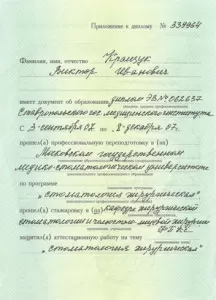 Приложение к диплому № 339964
Фамилия, имя, отчество Кращук
Виктор Иванович
имеет документ об образовании диплом ЭВ № 062637
Ставропольского медицинского института
С 3 сентября 07. по 8 декабря 07.
прошел(а) профессиональную переподготовку в (на)
Московском государственном
медико-стоматологическом университете
по программе
"стоматология хирургическая"
прошел(а) стажировку в (на) кафедре хирургической
стоматологии и челюстно-лицевой хирургии
защитил(а) аттестационную работу на тему
"стоматология хирургическая"